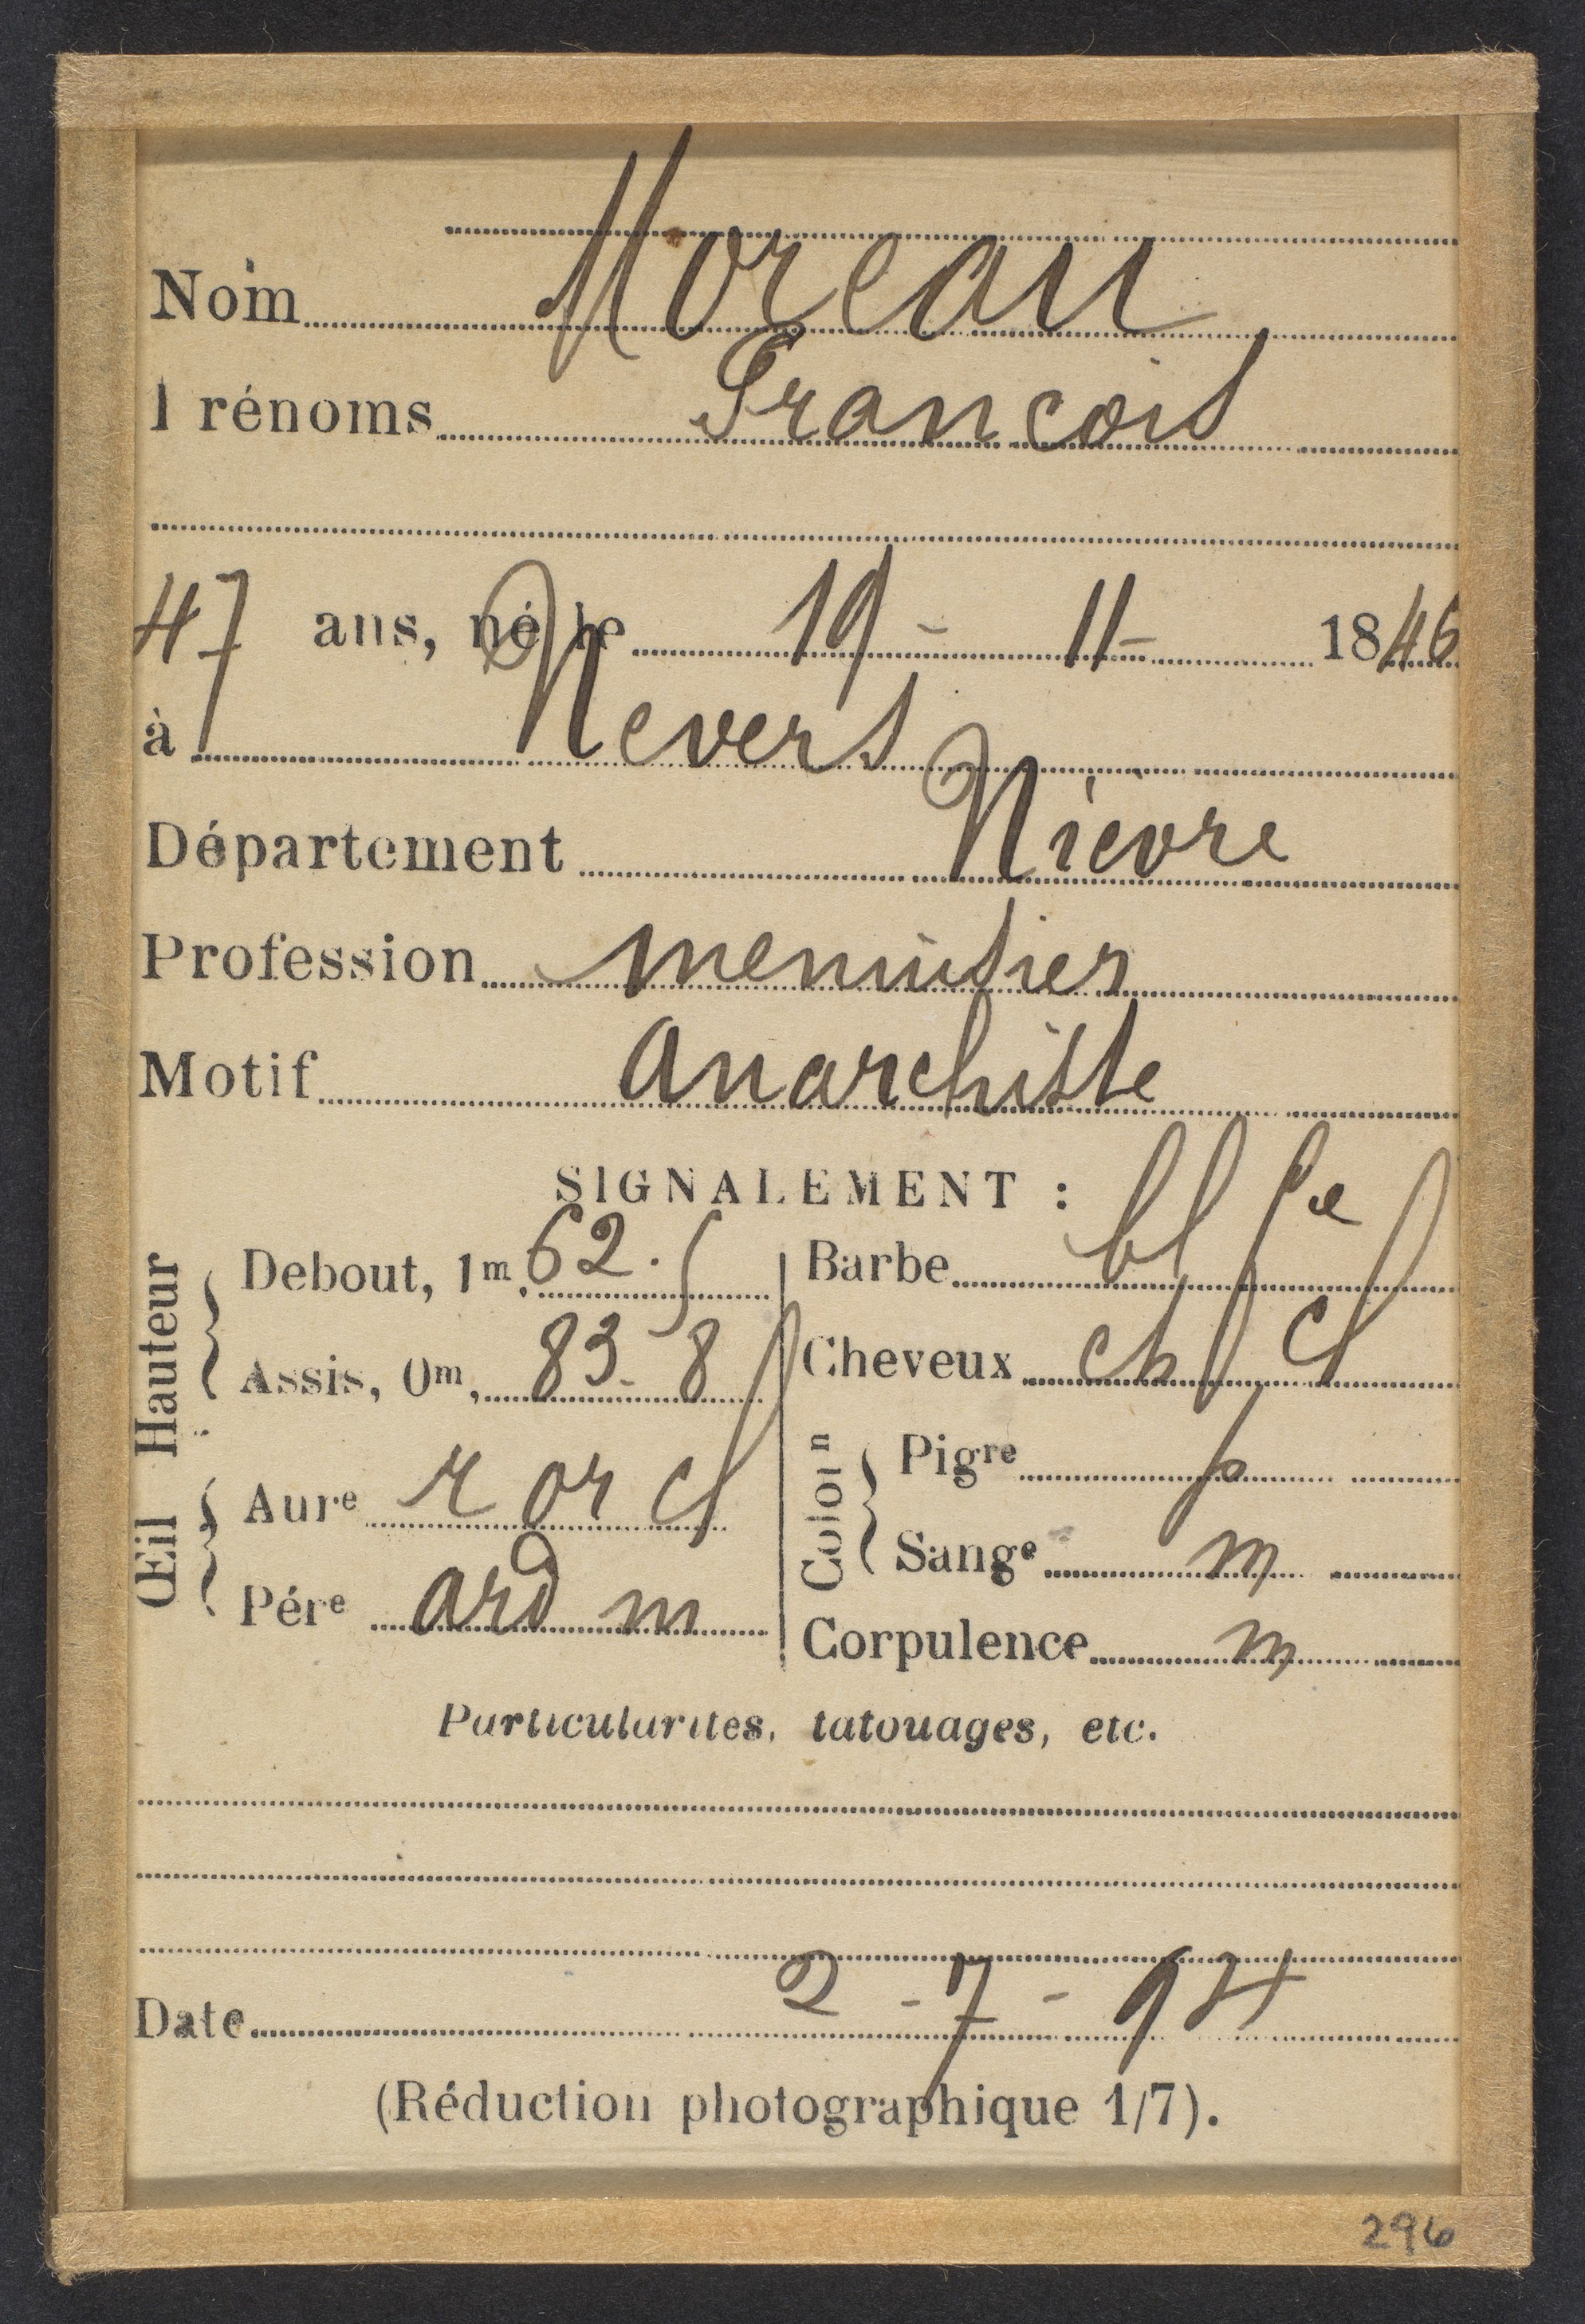 Nom Moreau
Prénoms François
47 ans, né le 19 - 11 - 1846
à Nevers
Département Nièvre
Profession menuisier
Motif Anarchiste
SIGNALEMENT :
Hauteur
Debout, 1m, 62.5
Assis, 0m, 83-8
Œil
Aure r or cl
Pére ard m
Barbe bl
Cheveux ch cl
Colon
Pigre p
Sange m
Corpulence m
Particularités, tatouages, etc.
Date 2 - 7 - 94
(Réduction photographique 1/7).
296